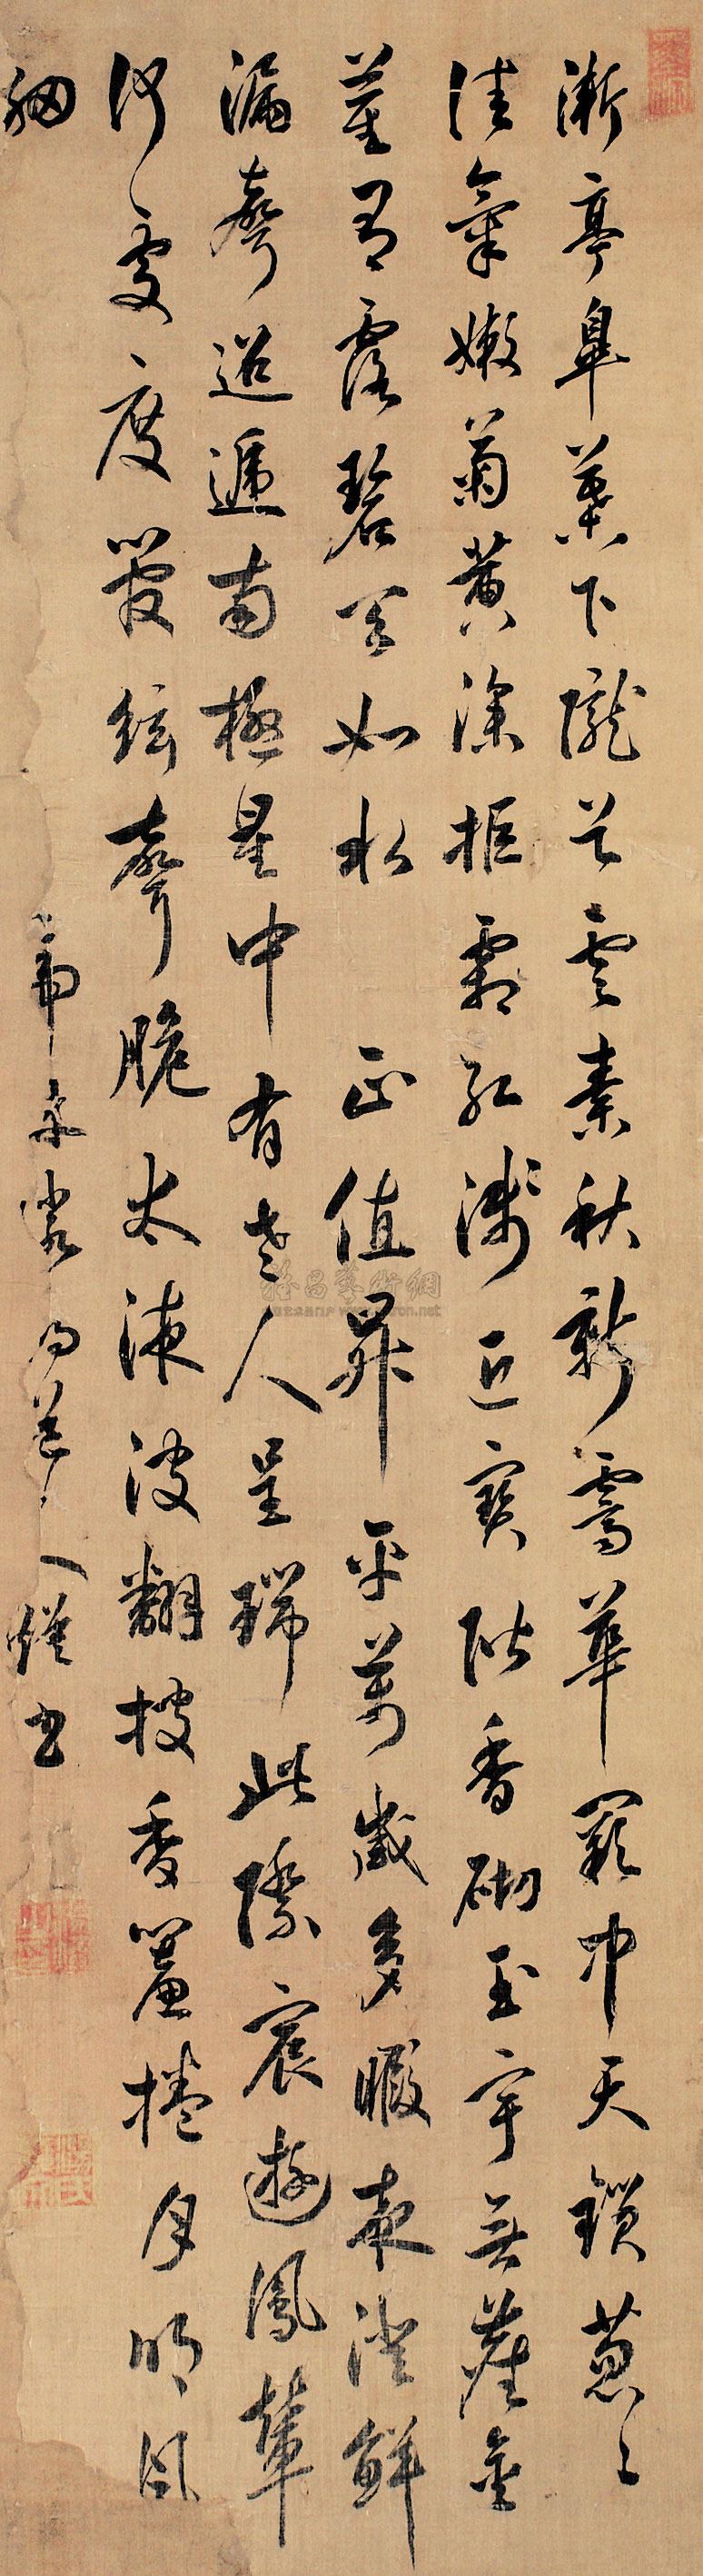 漸亭皋葉下隴首雲素秋新霽華闕中天鎖蔥〻
佳氣嫩菊黃深拒霜紅淺近寶階香砌玉宇無塵金
莖有露碧天如水 正值昇平萬歲多暇夜澄鮮
漏聲迢遞南極星中有老人呈瑞此際宸遊鳳輦
何處度管絃聲脆太液波翻披香簾捲月明風
細
人書
雅昌藝術網